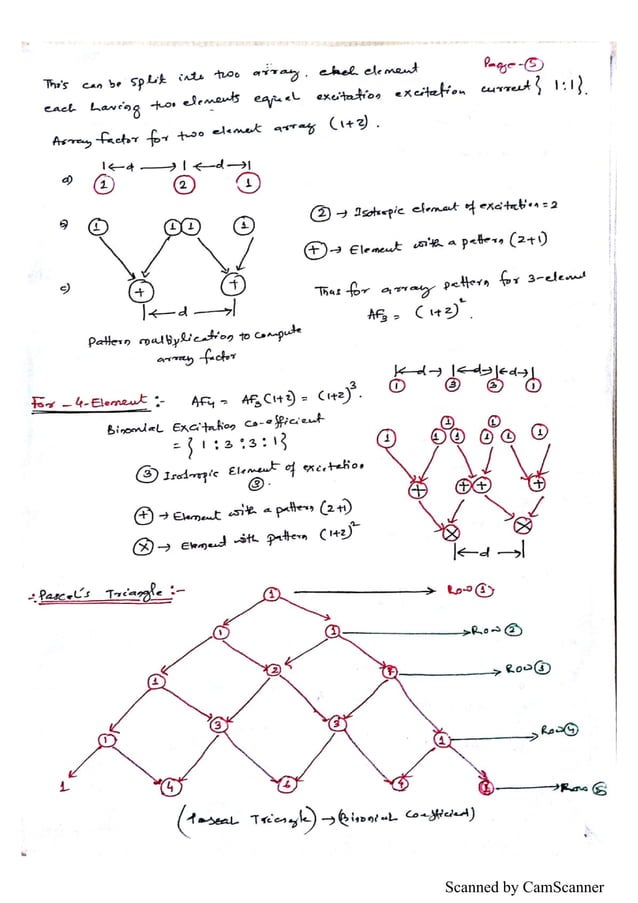 Page-5
This can be split into two array. each element
each having two elements equal excitation excitation current{ 1:1}.
Array factor for two element array (1+z).
|← d →| |← d →|
a) 1 2 1
b) 1 1 1 1
c) + +
|← d →|
Pattern multiplication to compute
array factor
2 → Isotropic element of excitation = 2
+ → Element with a pattern (z+1)
Thus for array pattern for 3-element
AF3 = (1+z)²
For - 4-Element :- AF4 = AF3 (1+z) = (1+z)³.
Binomial Excitation co-efficient
= { 1 : 3 : 3 : 1}
3 Isotropic Element of excitation
3.
+ → Element with a pattern (z+1)
X → Element with pattern (1+z)²
|← d → |← d → |← d →|
1 3 3 1
1 1 1 1 1 1 1 1
+ + + +
X X
|← d →|
∴ Pascel's Triangle :-
1 → Row 1
1 1 → Row 2
1 2 1 → Row 3
1 3 3 1 → Row 4
1 4 6 4 1 → Row 5
(Pascal Triangle) → (Binomial Coefficient)
Scanned by CamScanner